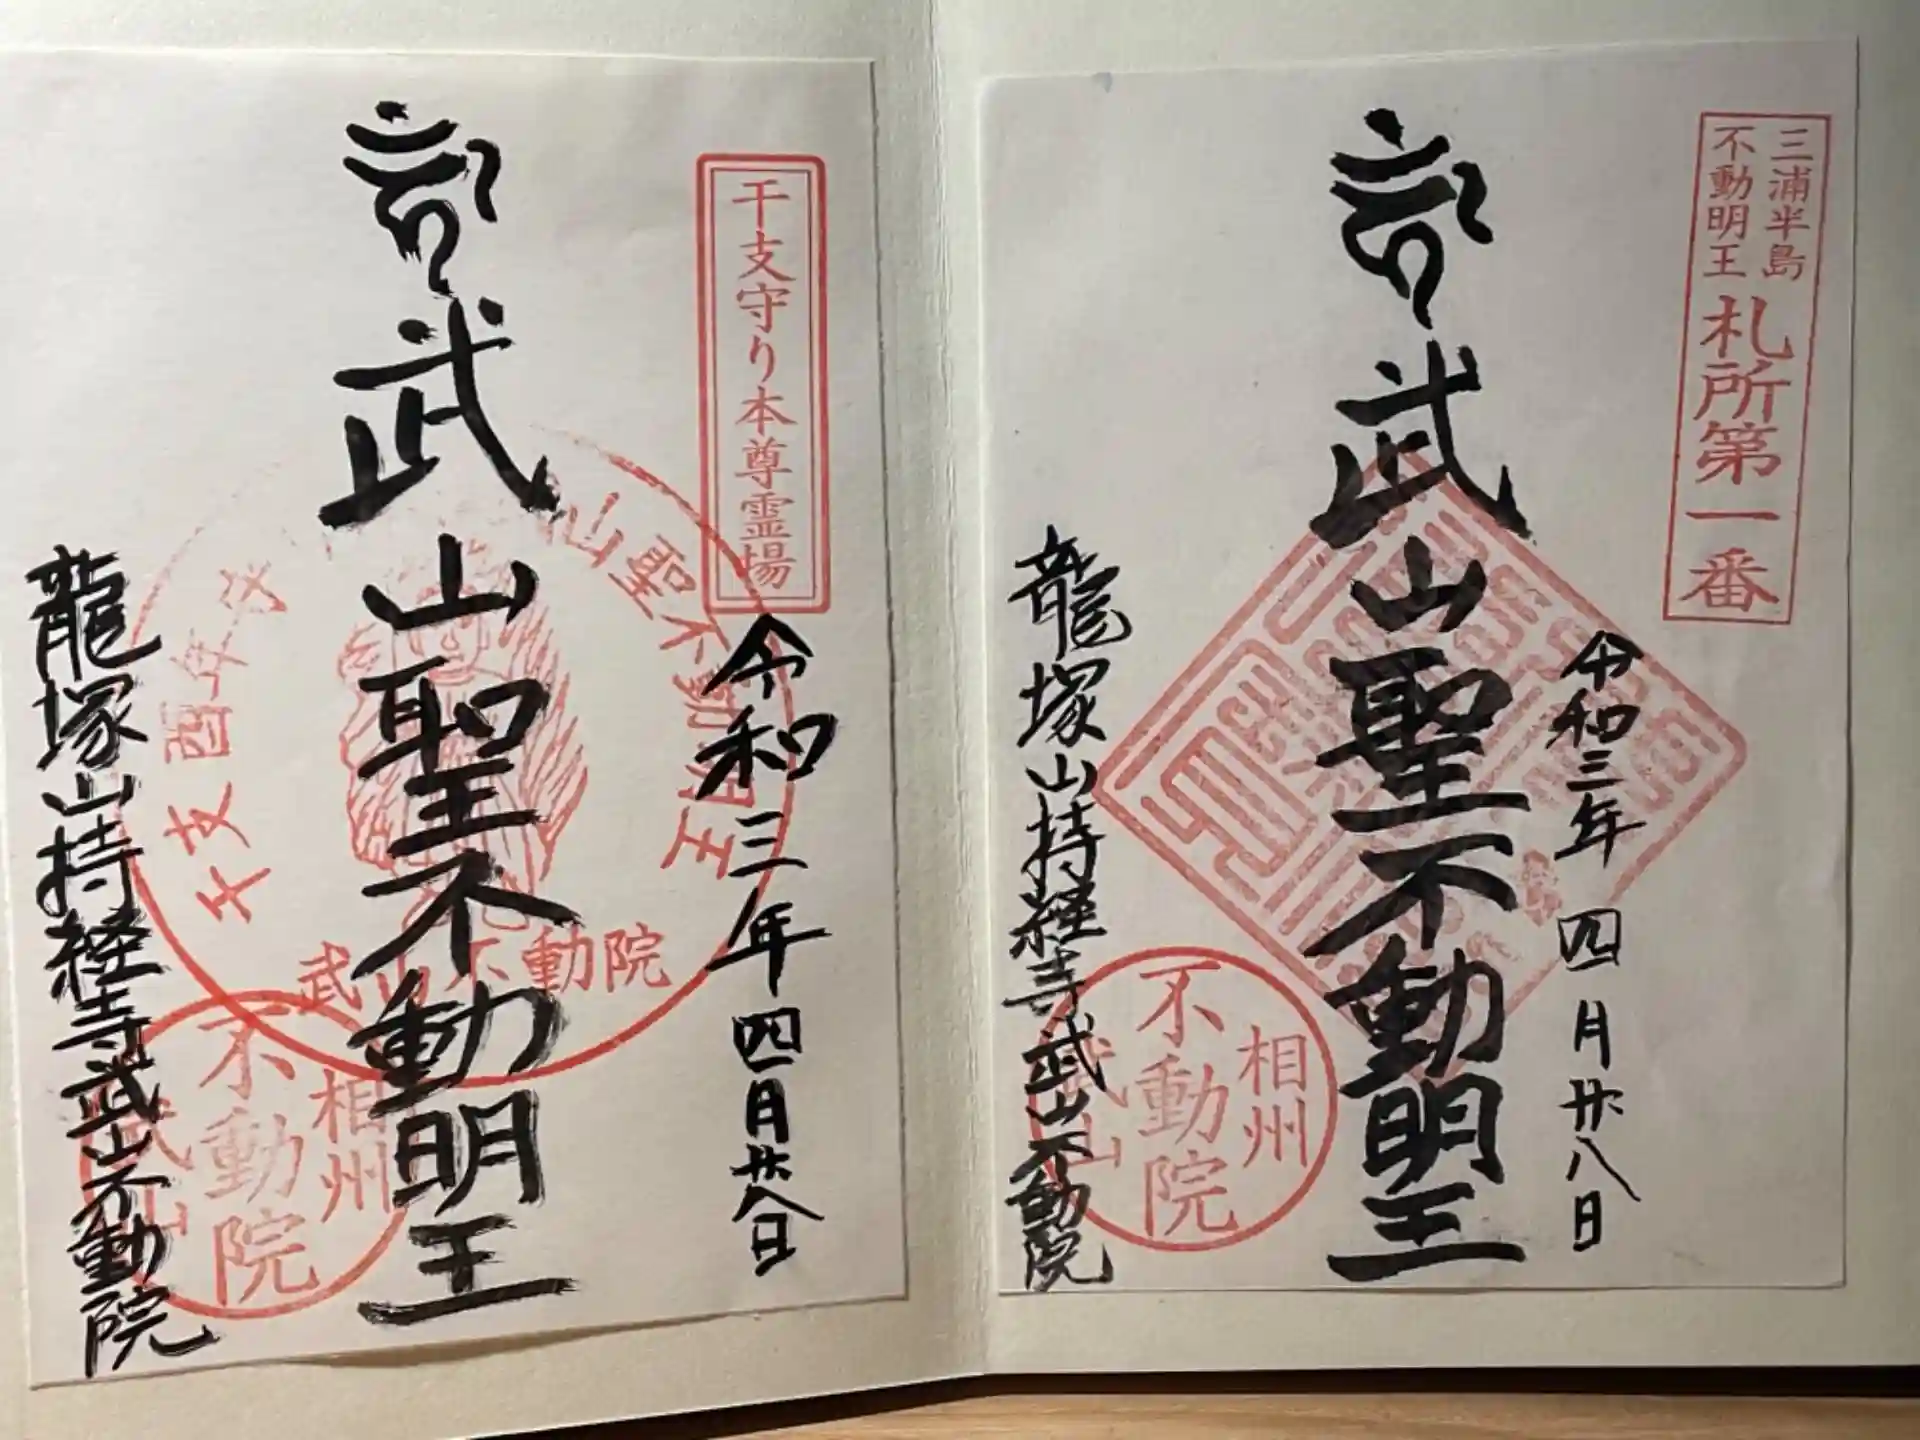 三浦半島
不動明王
札所第一番
令和三年四月廿八日
武山聖不動明王
龍塚山持経寺武山不動院
相州
不動院
武山
干支守り本尊霊場
令和三年四月廿八日
武山聖不動明王
龍塚山持経寺武山不動院
山聖不動明王
武山不動院
相州
不動院
武山